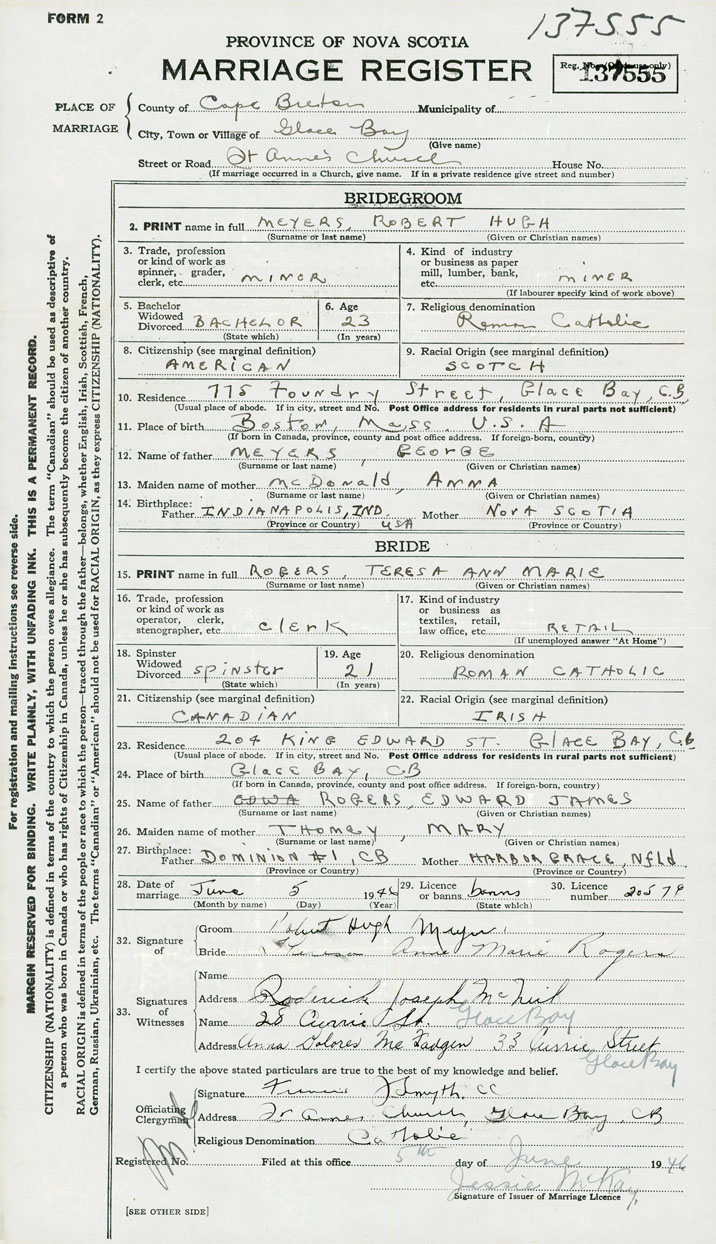 FORM 2
137555
PROVINCE OF NOVA SCOTIA
MARRIAGE REGISTER
Reg. No. (Office use only)
137555
PLACE OF MARRIAGE
County of Cape Breton Municipality of
City, Town or Village of Glace Bay
(Give name)
Street or Road St Anne's Church House No.
(If marriage occurred in a Church, give name. If in a private residence give street and number)
BRIDEGROOM
2. PRINT name in full MEYERS, ROBERT HUGH
(Surname or last name) (Given or Christian names)
3. Trade, profession or kind of work as spinner, grader, clerk, etc. MINER
4. Kind of industry or business as paper mill, lumber, bank, etc. MINER
(If labourer specify kind of work above)
5. Bachelor Widowed Divorced BACHELOR
(State which)
6. Age 23
(In years)
7. Religious denomination Roman Catholic
8. Citizenship (see marginal definition) AMERICAN
9. Racial Origin (see marginal definition) SCOTCH
10. Residence 775 Foundry Street, Glace Bay, C.B
(Usual place of abode. If in city, street and No. Post Office address for residents in rural parts not sufficient)
11. Place of birth Boston, Mass. U.S.A
(If born in Canada, province, county and post office address. If foreign-born, country)
12. Name of father MEYERS, GEORGE
(Surname or last name) (Given or Christian names)
13. Maiden name of mother McDonald, ANNA
(Surname or last name) (Given or Christian names)
14. Birthplace: Father INDIANAPOLIS, IND USA Mother NOVA SCOTIA
(Province or Country) (Province or Country)
BRIDE
15. PRINT name in full ROGERS, TERESA ANN MARIE
(Surname or last name) (Given or Christian names)
16. Trade, profession or kind of work as operator, clerk, stenographer, etc clerk
17. Kind of industry or business as textiles, retail, law office, etc. RETAIL
(If unemployed answer "At Home")
18. Spinster Widowed Divorced spinster
(State which)
19. Age 21
(In years)
20. Religious denomination ROMAN CATHOLIC
21. Citizenship (see marginal definition) CANADIAN
22. Racial Origin (see marginal definition) IRISH
23. Residence 204 KING EDWARD ST. GLACE BAY, C.B
(Usual place of abode. If in city, street and No. Post Office address for residents in rural parts not sufficient)
24. Place of birth GLACE BAY, CB
(If born in Canada, province, county and post office address. If foreign-born, country)
25. Name of father ROGERS, EDWARD JAMES
(Surname or last name) (Given or Christian names)
26. Maiden name of mother THOMEY, MARY
(Surname or last name) (Given or Christian names)
27. Birthplace: Father DOMINION #1, CB Mother HARBOR GRACE, Nfld.
(Province or Country) (Province or Country)
28. Date of marriage June 5 1946
(Month by name) (Day) (Year)
29. Licence or banns banns
(State which)
30. Licence number 20579
32. Signature of
Groom Robert Hugh Meyers
Bride Teresa Anne Marie Rogers
33. Signatures of Witnesses
Name
Address Roderick Joseph McNeil
Name 28 Currie St. Glace Bay
Address Anna Dolores McFadgen 33 Currie Street
Glace Bay
I certify the above stated particulars are true to the best of my knowledge and belief.
Officiating Clergyman
Signature Francis J Smyth. CC
Address St Annes Church, Glace Bay, CB
Religious Denomination Catholic
Registered No. Filed at this office 5th day of June 1946
Jessie McKay
Signature of Issuer of Marriage Licence
[SEE OTHER SIDE]
For registration and mailing instructions see reverse side.
MARGIN RESERVED FOR BINDING. WRITE PLAINLY, WITH UNFADING INK. THIS IS A PERMANENT RECORD.
CITIZENSHIP (NATIONALITY) is defined in terms of the country to which the person owes allegiance. The term "Canadian" should be used as descriptive of
a person who was born in Canada or who has rights of Citizenship in Canada, unless he or she has subsequently become the citizen of another country.
RACIAL ORIGIN is defined in terms of the people or race to which the person—traced through the father—belongs, whether English, Irish, Scottish, French,
German, Russian, Ukrainian, etc. The terms "Canadian" or "American" should not be used for RACIAL ORIGIN, as they express CITIZENSHIP (NATIONALITY).